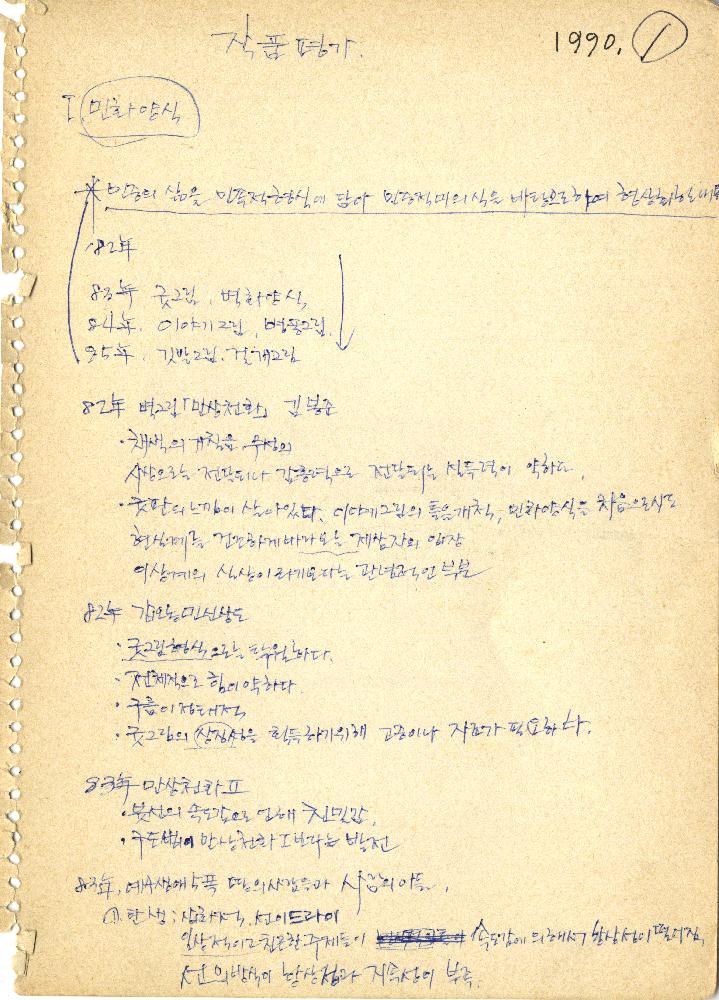 작품평가.
1990. ①
I. 민화양식
* 민중의 삶을 민족적형식에 담아 민중적미의식을 바탕으로하여 형상화하는
82年
83年 굿그림, 벽화양식,
84年. 이야기그림, 병풍그림.
85年. 깃발그림. 걸개그림
82年 벽그림「만상천화」 김봉준
· 채색의
사상으로는 전달되나 감흥력으로 전달되는 설득력이 약하다.
· 굿판의 느낌이 살아있다. 이야기그림의 틀을개척, 민화양식을 처음으로시도
현실세계를 건강하게바라보는 제삼자의 입장
이상계의 관념적인 부분
82年 갑오농민신상도
· 굿그림형식으로는 탁월하다.
· 전체적으로 힘이약하다
· 구름이정태적
· 굿그림의 상징성을 획득하기위해 고증이나 자료가 필요하다.
83年 만상천화 II
· 붓선의 속도감으로 인해 친밀감,
· 구도법이 만상천화 I 보다는 발전
83年. 예수생애 5폭 땅의사람들과 사람의아들.
① 탄생; 삽화성격, 선이드라이
일상적이고친근한주제들이 속도감에의해서 환상성이떨어짐,
선의방식이 지속상이 부족.